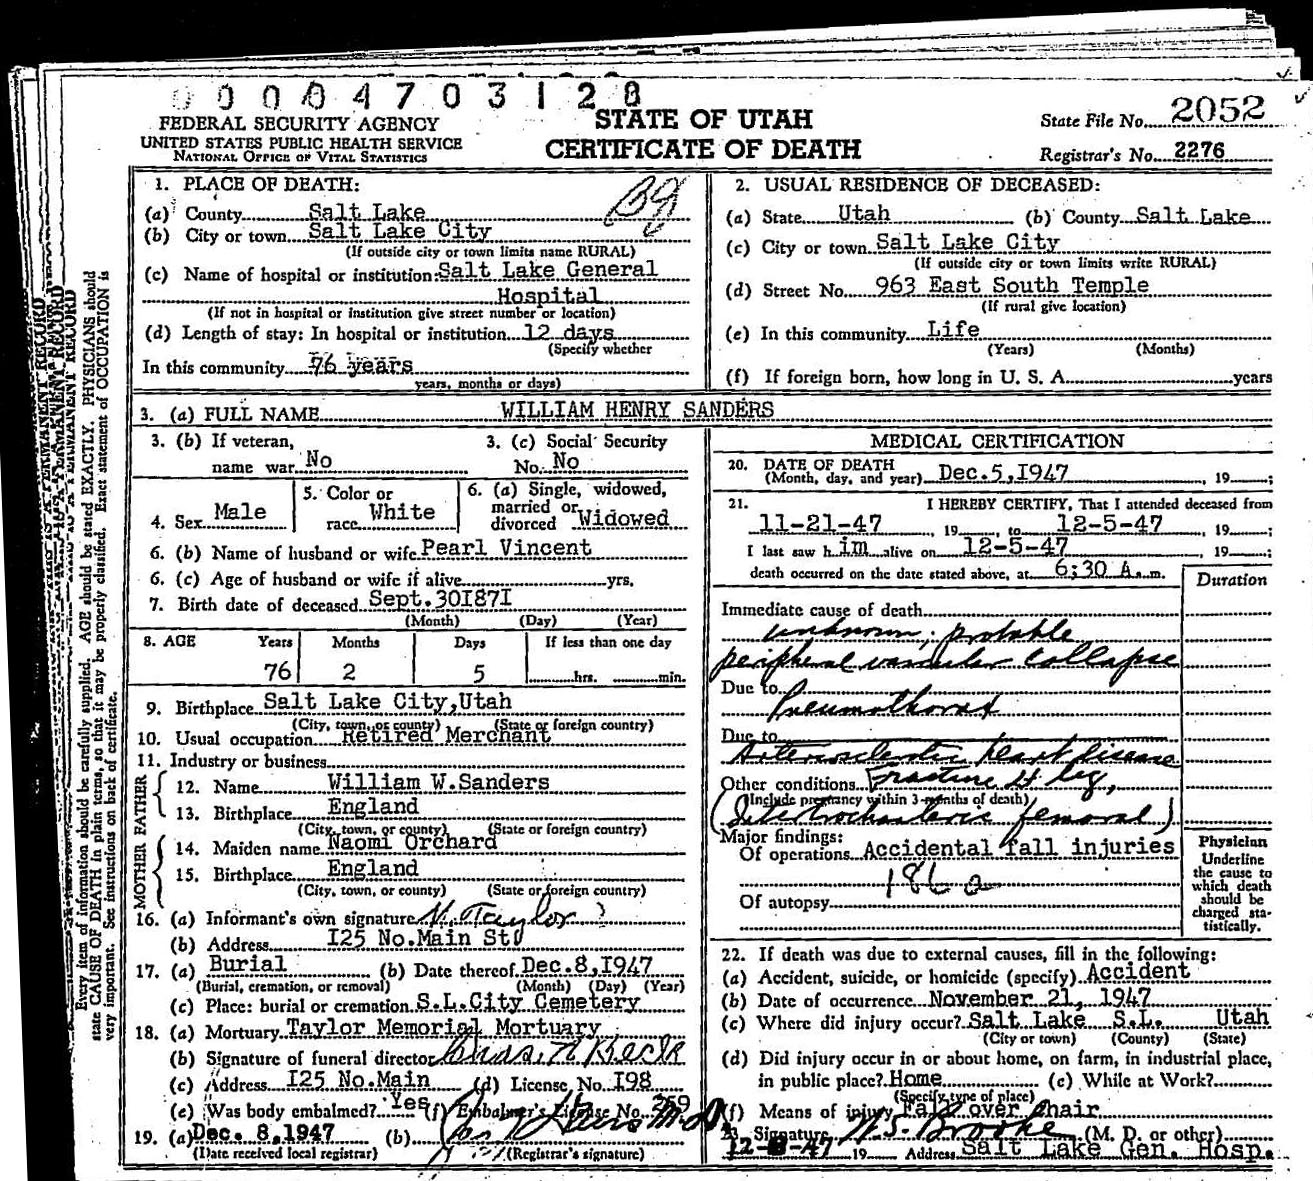 0 0 0 0 4 7 0 3 1 2 8
FEDERAL SECURITY AGENCY
UNITED STATES PUBLIC HEALTH SERVICE
NATIONAL OFFICE OF VITAL STATISTICS
STATE OF UTAH
CERTIFICATE OF DEATH
State File No. 2052
Registrar's No. 2276
Every item of information should be carefully supplied. AGE should be stated EXACTLY. PHYSICIANS should
state CAUSE OF DEATH in plain terms, so that it may be properly classified. Exact statement of OCCUPATION is
very important. See instructions on back of certificate.
1. PLACE OF DEATH:
(a) County Salt Lake
(b) City or town Salt Lake City
(If outside city or town limits name RURAL)
(c) Name of hospital or institution: Salt Lake General
Hospital
(If not in hospital or institution give street number or location)
(d) Length of stay: In hospital or institution 12 days
(Specify whether
In this community 76 years
years, months or days)
2. USUAL RESIDENCE OF DECEASED:
(a) State Utah (b) County Salt Lake
(c) City or town Salt Lake City
(If outside city or town limits write RURAL)
(d) Street No. 963 East South Temple
(If rural give location)
(e) In this community Life
(Years) (Months)
(f) If foreign born, how long in U. S. A. years
3. (a) FULL NAME WILLIAM HENRY SANDERS
3. (b) If veteran,
name war No
3. (c) Social Security
No. No
4. Sex Male
5. Color or
race White
6. (a) Single, widowed,
married or
divorced Widowed
6. (b) Name of husband or wife Pearl Vincent
6. (c) Age of husband or wife if alive yrs.
7. Birth date of deceased Sept.30I87I
(Month) (Day) (Year)
8. AGE Years Months Days If less than one day
76 2 5 hrs. min.
9. Birthplace Salt Lake City,Utah
(City, town, or county) (State or foreign country)
10. Usual occupation Retired Merchant
11. Industry or business
FATHER
12. Name William W.Sanders
13. Birthplace England
(City, town, or county) (State or foreign country)
MOTHER
14. Maiden name Naomi Orchard
15. Birthplace England
(City, town, or county) (State or foreign country)
16. (a) Informant's own signature Taylor
(b) Address I25 No.Main St
17. (a) Burial (b) Date thereof Dec.8,I947
(Burial, cremation, or removal) (Month) (Day) (Year)
(c) Place: burial or cremation S.L.City Cemetery
18. (a) Mortuary Taylor Memorial Mortuary
(b) Signature of funeral director
(c) Address I25 No.Main (d) License No. I98
(e) Was body embalmed? Yes (f) Embalmer's License No.
19. (a) Dec. 8,1947 (b)
(Date received local registrar) (Registrar's signature)
MEDICAL CERTIFICATION
20. DATE OF DEATH
(Month, day, and year) Dec.5,I947, 19 ;
21. I HEREBY CERTIFY, That I attended deceased from
11-21-47, 19 to 12-5-47, 19 ;
I last saw h im alive on 12-5-47, 19 ;
death occurred on the date stated above, at 6:30 A. m.
Duration
Immediate cause of death
unknown; probable
peripheral vascular collapse
Due to
Pneumothorax
Due to
Arteriosclerotic heart disease
Other conditions Fracture leg,
(Include pregnancy within 3 months of death)
(Intertrochanteric femoral)
Major findings:
Of operations Accidental fall injuries
186 a
Of autopsy
Physician
Underline
the cause to
which death
should be
charged sta-
tistically.
22. If death was due to external causes, fill in the following:
(a) Accident, suicide, or homicide (specify) Accident
(b) Date of occurrence November 21, 1947
(c) Where did injury occur? Salt Lake S.L. Utah
(City or town) (County) (State)
(d) Did injury occur in or about home, on farm, in industrial place,
in public place? Home (e) While at Work?
(Specify type of place)
(f) Means of injury Fall over chair
23. Signature (M. D. or other)
19 Address Salt Lake Gen. Hosp.